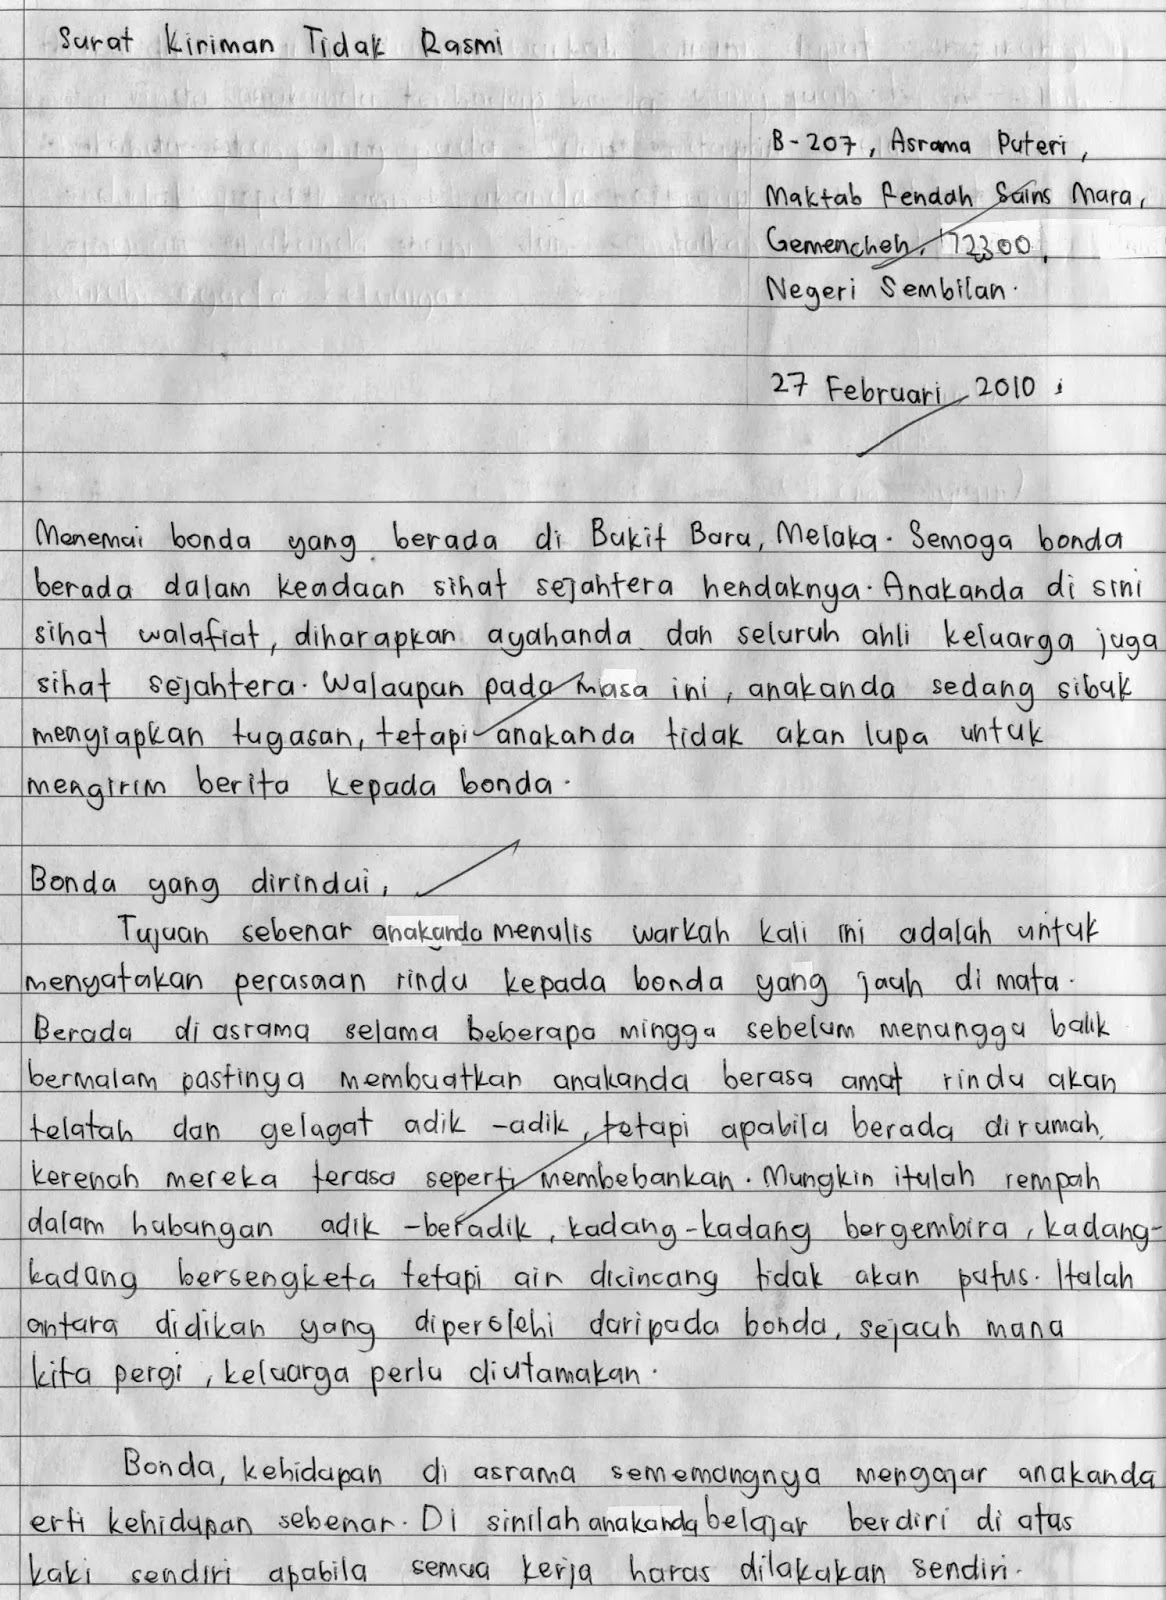 Surat Kiriman Tidak Rasmi
B-207, Asrama Puteri,
Maktab Rendah Sains Mara,
Gemencheh, 72300,
Negeri Sembilan.
27 Februari 2010
Menemui bonda yang berada di Bukit Baru, Melaka. Semoga bonda
berada dalam keadaan sihat sejahtera hendaknya. Anakanda di sini
sihat walafiat, diharapkan ayahanda dan seluruh ahli keluarga juga
sihat sejahtera. Walaupun pada masa ini, anakanda sedang sibuk
menyiapkan tugasan, tetapi anakanda tidak akan lupa untuk
mengirim berita kepada bonda.
Bonda yang dirindui,
Tujuan sebenar anakanda menulis warkah kali ini adalah untuk
menyatakan perasaan rindu kepada bonda yang jauh di mata.
Berada di asrama selama beberapa minggu sebelum menunggu balik
bermalam pastinya membuatkan anakanda berasa amat rindu akan
telatah dan gelagat adik-adik, tetapi apabila berada dirumah,
kerenah mereka terasa seperti membebankan. Mungkin itulah rempah
dalam hubungan adik-beradik, kadang-kadang bergembira, kadang-
kadang bersengketa tetapi air dicincang tidak akan putus. Itulah
antara didikan yang diperolehi daripada bonda, sejauh mana
kita pergi, keluarga perlu diutamakan.
Bonda, kehidupan di asrama sememangnya mengajar anakanda
erti kehidupan sebenar. Di sinilah anakanda belajar berdiri di atas
kaki sendiri apabila semua kerja harus dilakukan sendiri.